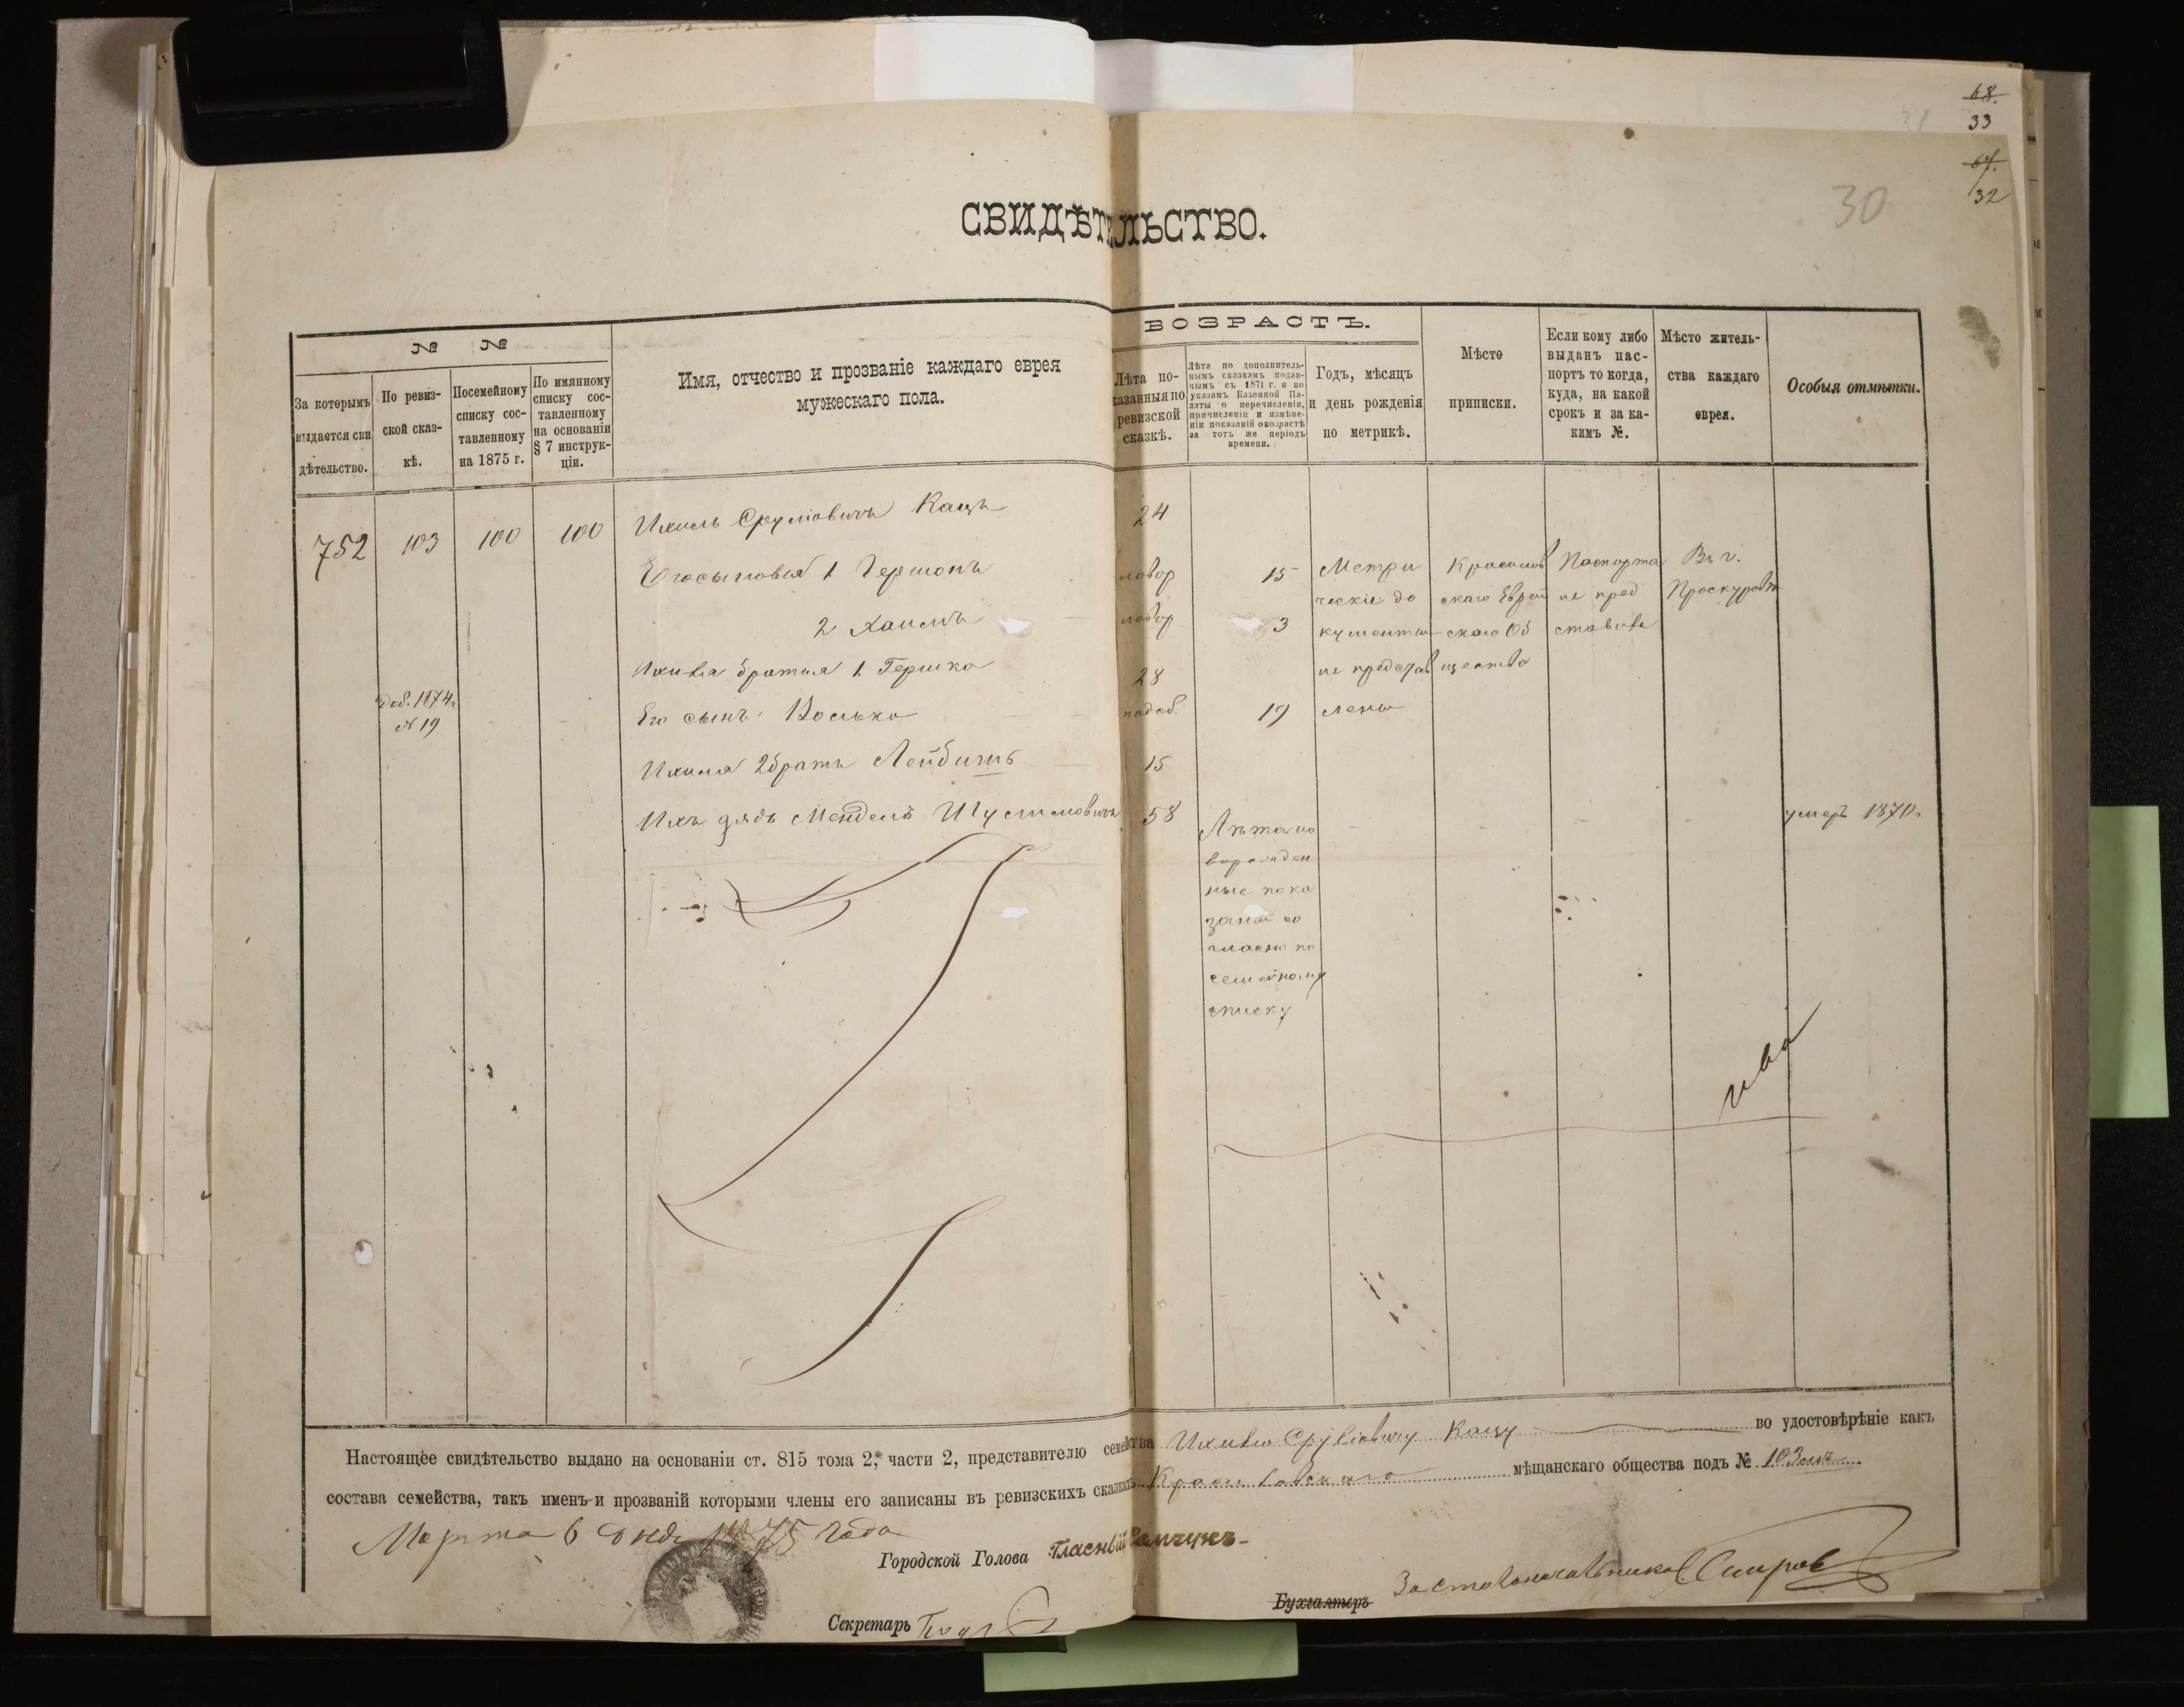 68.
33
67.
32
30
СВИДѢТЕЛЬСТВО.
№ №
За которымъ выдается свидѣтельство.
По ревизской сказкѣ.
Посемейному списку составленному на 1875 г.
По имянному списку составленному на основаніи § 7 инструкціи.
Имя, отчество и прозваніе каждаго еврея
мужескаго пола.
ВОЗРАСТЪ.
Лѣта показанныя по ревизской сказкѣ.
Лѣта по дополнительнымъ сказкамъ поданнымъ съ 1871 г. и по указамъ Казенной Палаты о перечисленіи, причисленіи и измѣненіи показаній овозрастѣ за тотъ же періодъ времени.
Годъ, мѣсяцъ и день рожденія по метрикѣ.
Мѣсто приписки.
Если кому либо выданъ паспортъ то когда, куда, на какой срокъ и за какимъ №.
Мѣсто жительства каждаго еврея.
Особыя отмѣтки.
752 103 100 100 Ихиль Сруліовичъ Кацъ 24
Его сыновья 1 Гершонъ новор 15 Метри Красилов Паспорта Въ г.
ческіе до скаго Еврей не пред Проскуровѣ
2 Хаимъ новор 3 кументы скаго Об ставилъ
Ихиля братья 1. Гершко 28 не представ щества
Доб. 1874 г.
№ 19
Его сынъ Волько подоб. 19 лены
Ихиля 2 братъ Лейбишъ 15
Ихъ дядь Мендель Шулимовичъ 58 умеръ 1870 г.
Лѣта но
ворожден
ные пока
заны со
гласно по
семейному
списку
Настоящее свидѣтельство выдано на основаніи ст. 815 тома 2, части 2, представителю семейства Ихилю Сруліовичу Кацу во удостовѣрѣніе какъ
состава семейства, такъ именъ и прозваній которыми члены его записаны въ ревизскихъ сказкахъ Красиловскаго мѣщанскаго общества подъ № 103мъ
Марта 6 дня 1875 года
Городской Голова Гласный
Секретарь
Бухгалтеръ За столоначальника